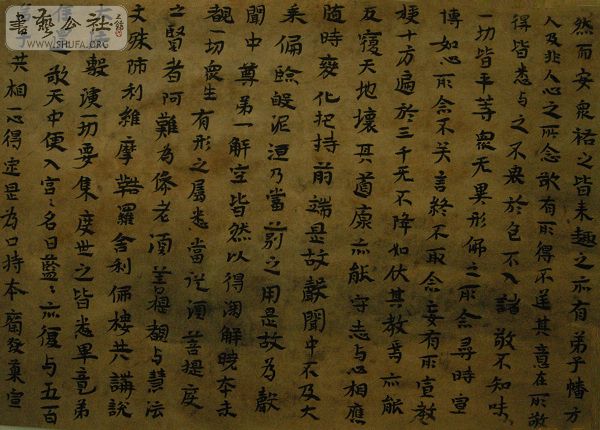 然而安衆祐之皆来趣之亦有弟子幡方
人及非人心之所念欲有所得不逆其意在所敬
得皆悉与之不衰於色不入諸敬不知味
一切皆平等衆无異形佛之所念尋時宣
博如心所念不失言終不取念妄有所宣教
十方遍於三千无不降如伏其教焉亦能
反覆天地壞其亦能守志与心相應
随時變化把持前端是故聲聞中不及大
乘偏般泥洹乃當前之用是故為聲
聞中尊第一解空皆然以得解晓本末
觀一切衆生有形之属悉當從須菩提度
之賢者阿難為老須菩觀与慧法
文殊師利維摩羅舍利佛樓共講説
敷演一切要集度世之皆悉畢竟弟
欲天中便入宫〻名曰藍〻亦復与五百
共相一心得定是為口持本發棄宣
書藝公社
WWW.SHUFA.ORG